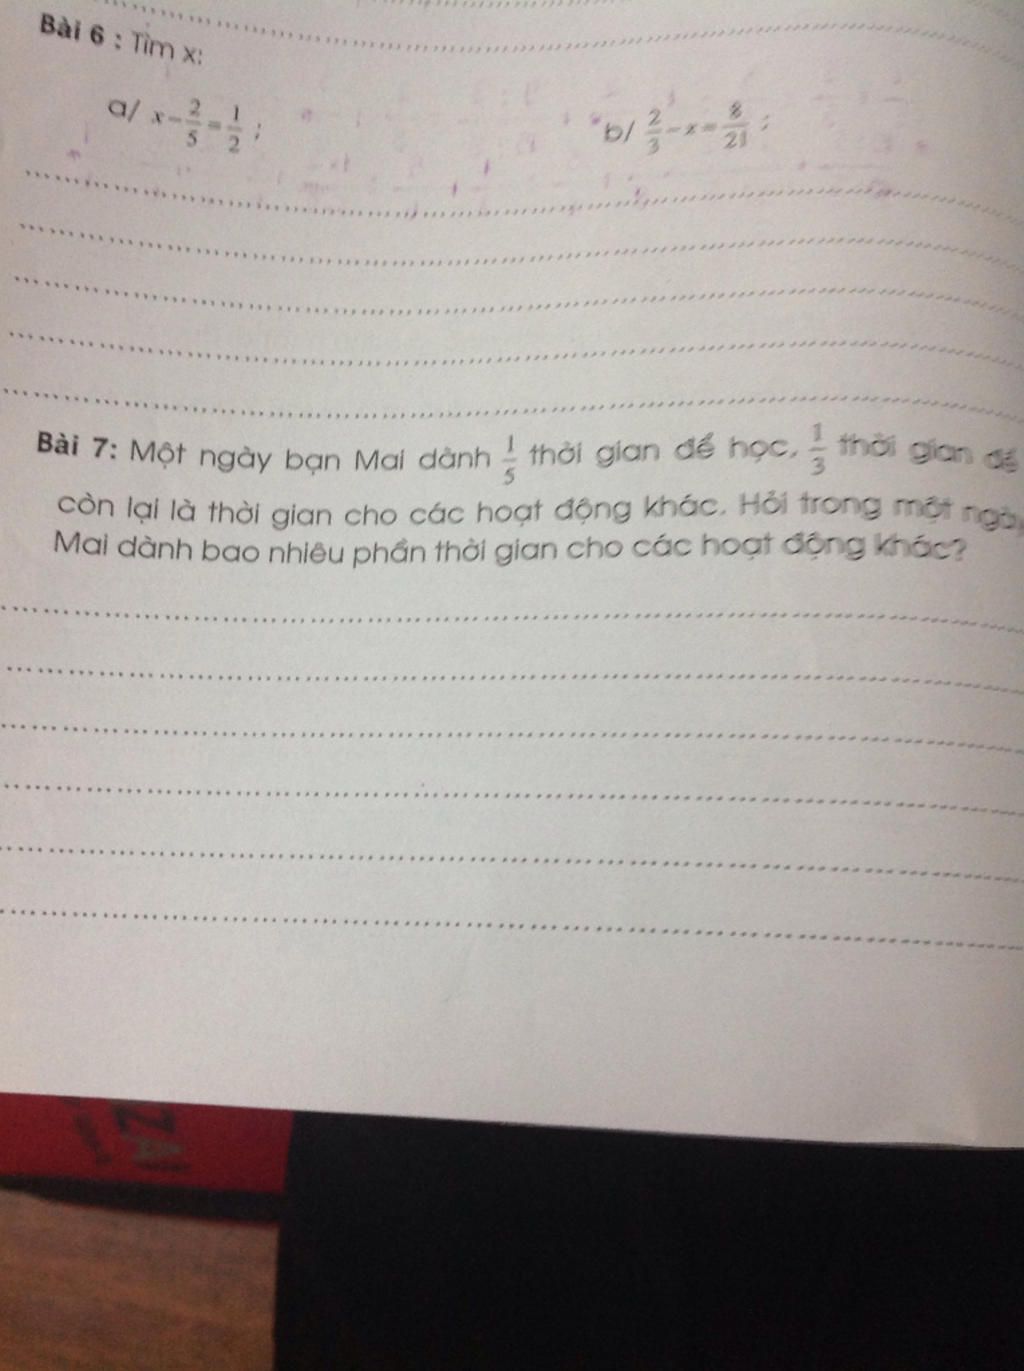 Bài 6 : Tìm x:
a/ x - 2/5 = 1/2 ; b/ 2/3 - x = 8/21 ;
Bài 7: Một ngày bạn Mai dành 1/5 thời gian để học, 1/3 thời gian để
còn lại là thời gian cho các hoạt động khác. Hỏi trong một ngày
Mai dành bao nhiêu phần thời gian cho các hoạt động khác?
ZA